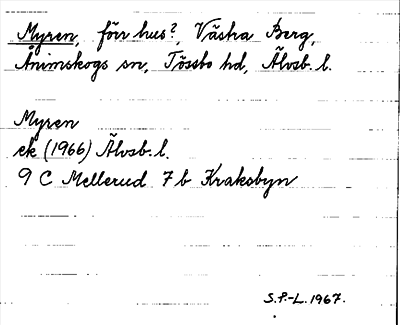 Myren, förr hus?, Västra Berg,
Ånimskogs sn, Tössbo hd, Älvsb. l.
Myren
ek (1966) Älvsb. l.
9 C Mellerud 7 b Kraksbyn
S.F.-L. 1967.